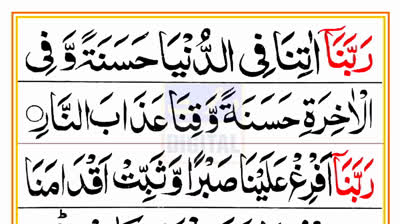 رَبَّنَاۤ اٰتِنَا فِی الدُّنْیَا حَسَنَةً وَّ فِی
الْاٰخِرَةِ حَسَنَةً وَّقِنَا عَذَابَ النَّارِ○
رَبَّنَاۤ اَفْرِغْ عَلَیْنَا صَبْرًا وَّ ثَبِّتْ اَقْدَامَنَا
DIGITAL